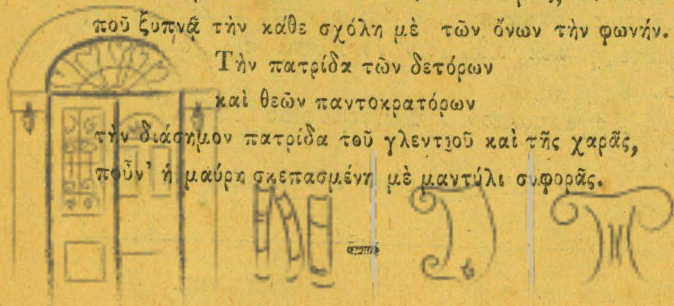 ποῦ ξυπνᾷ τὴν κάθε σχόλη μὲ τῶν ὄνων τὴν φωνήν.
Τὴν πατρίδα τῶν δετόρων
καὶ θεῶν παντοκρατόρων
τὴν διάσημον πατρίδα τοῦ γλεντιοῦ καὶ τῆς χαρᾶς,
ποῦν' ἡ μαύρη σκεπασμένη μὲ μαντύλι συφορᾶς.